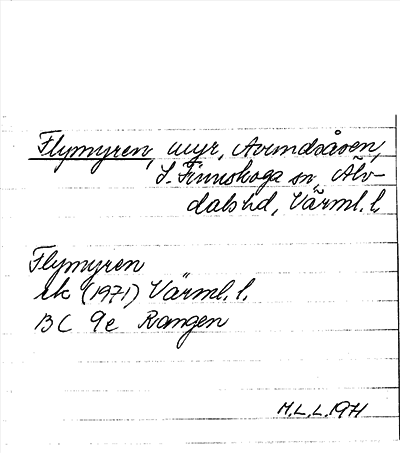 Flymyren, myr, Avundsåsen,
S. Finnskoga sn, Älv-
dals hd, Värml. l.
Flymyren
ek (1971) Värml. l.
13 C 9e Rangen
M.L.L. 1971